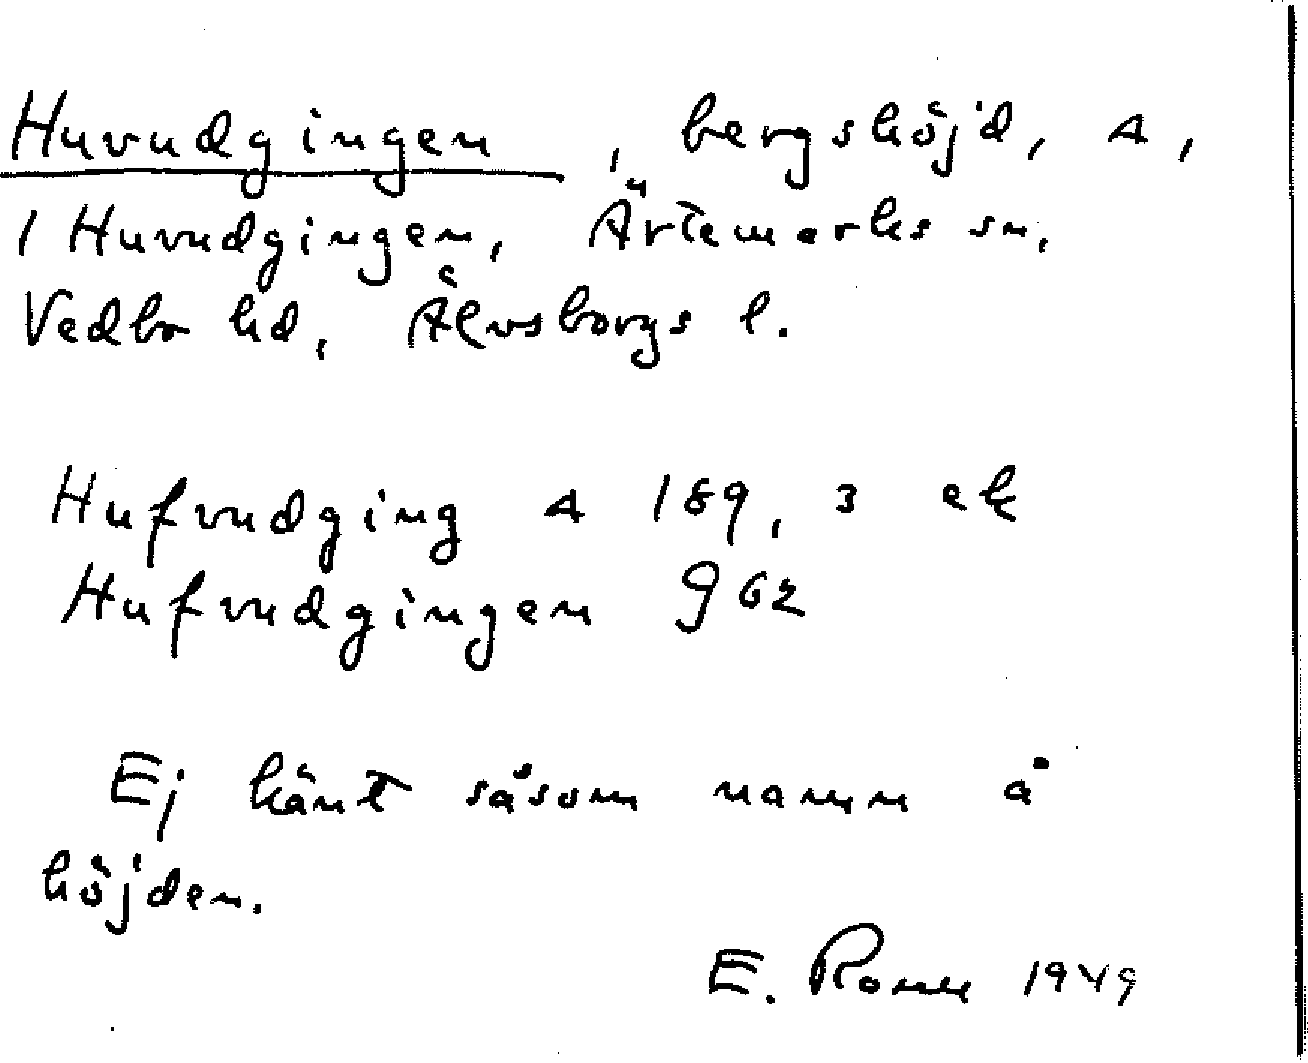 Huvudgingen, bergshöjd, Δ,
1 Huvudgingen, Ärtemarks sn,
Vedbo hd, Älvsborgs l.
Hufvudging Δ 189,3 ek
Hufvudgingen g 62
Ej känt såsom namn å
höjden.
E. 1949